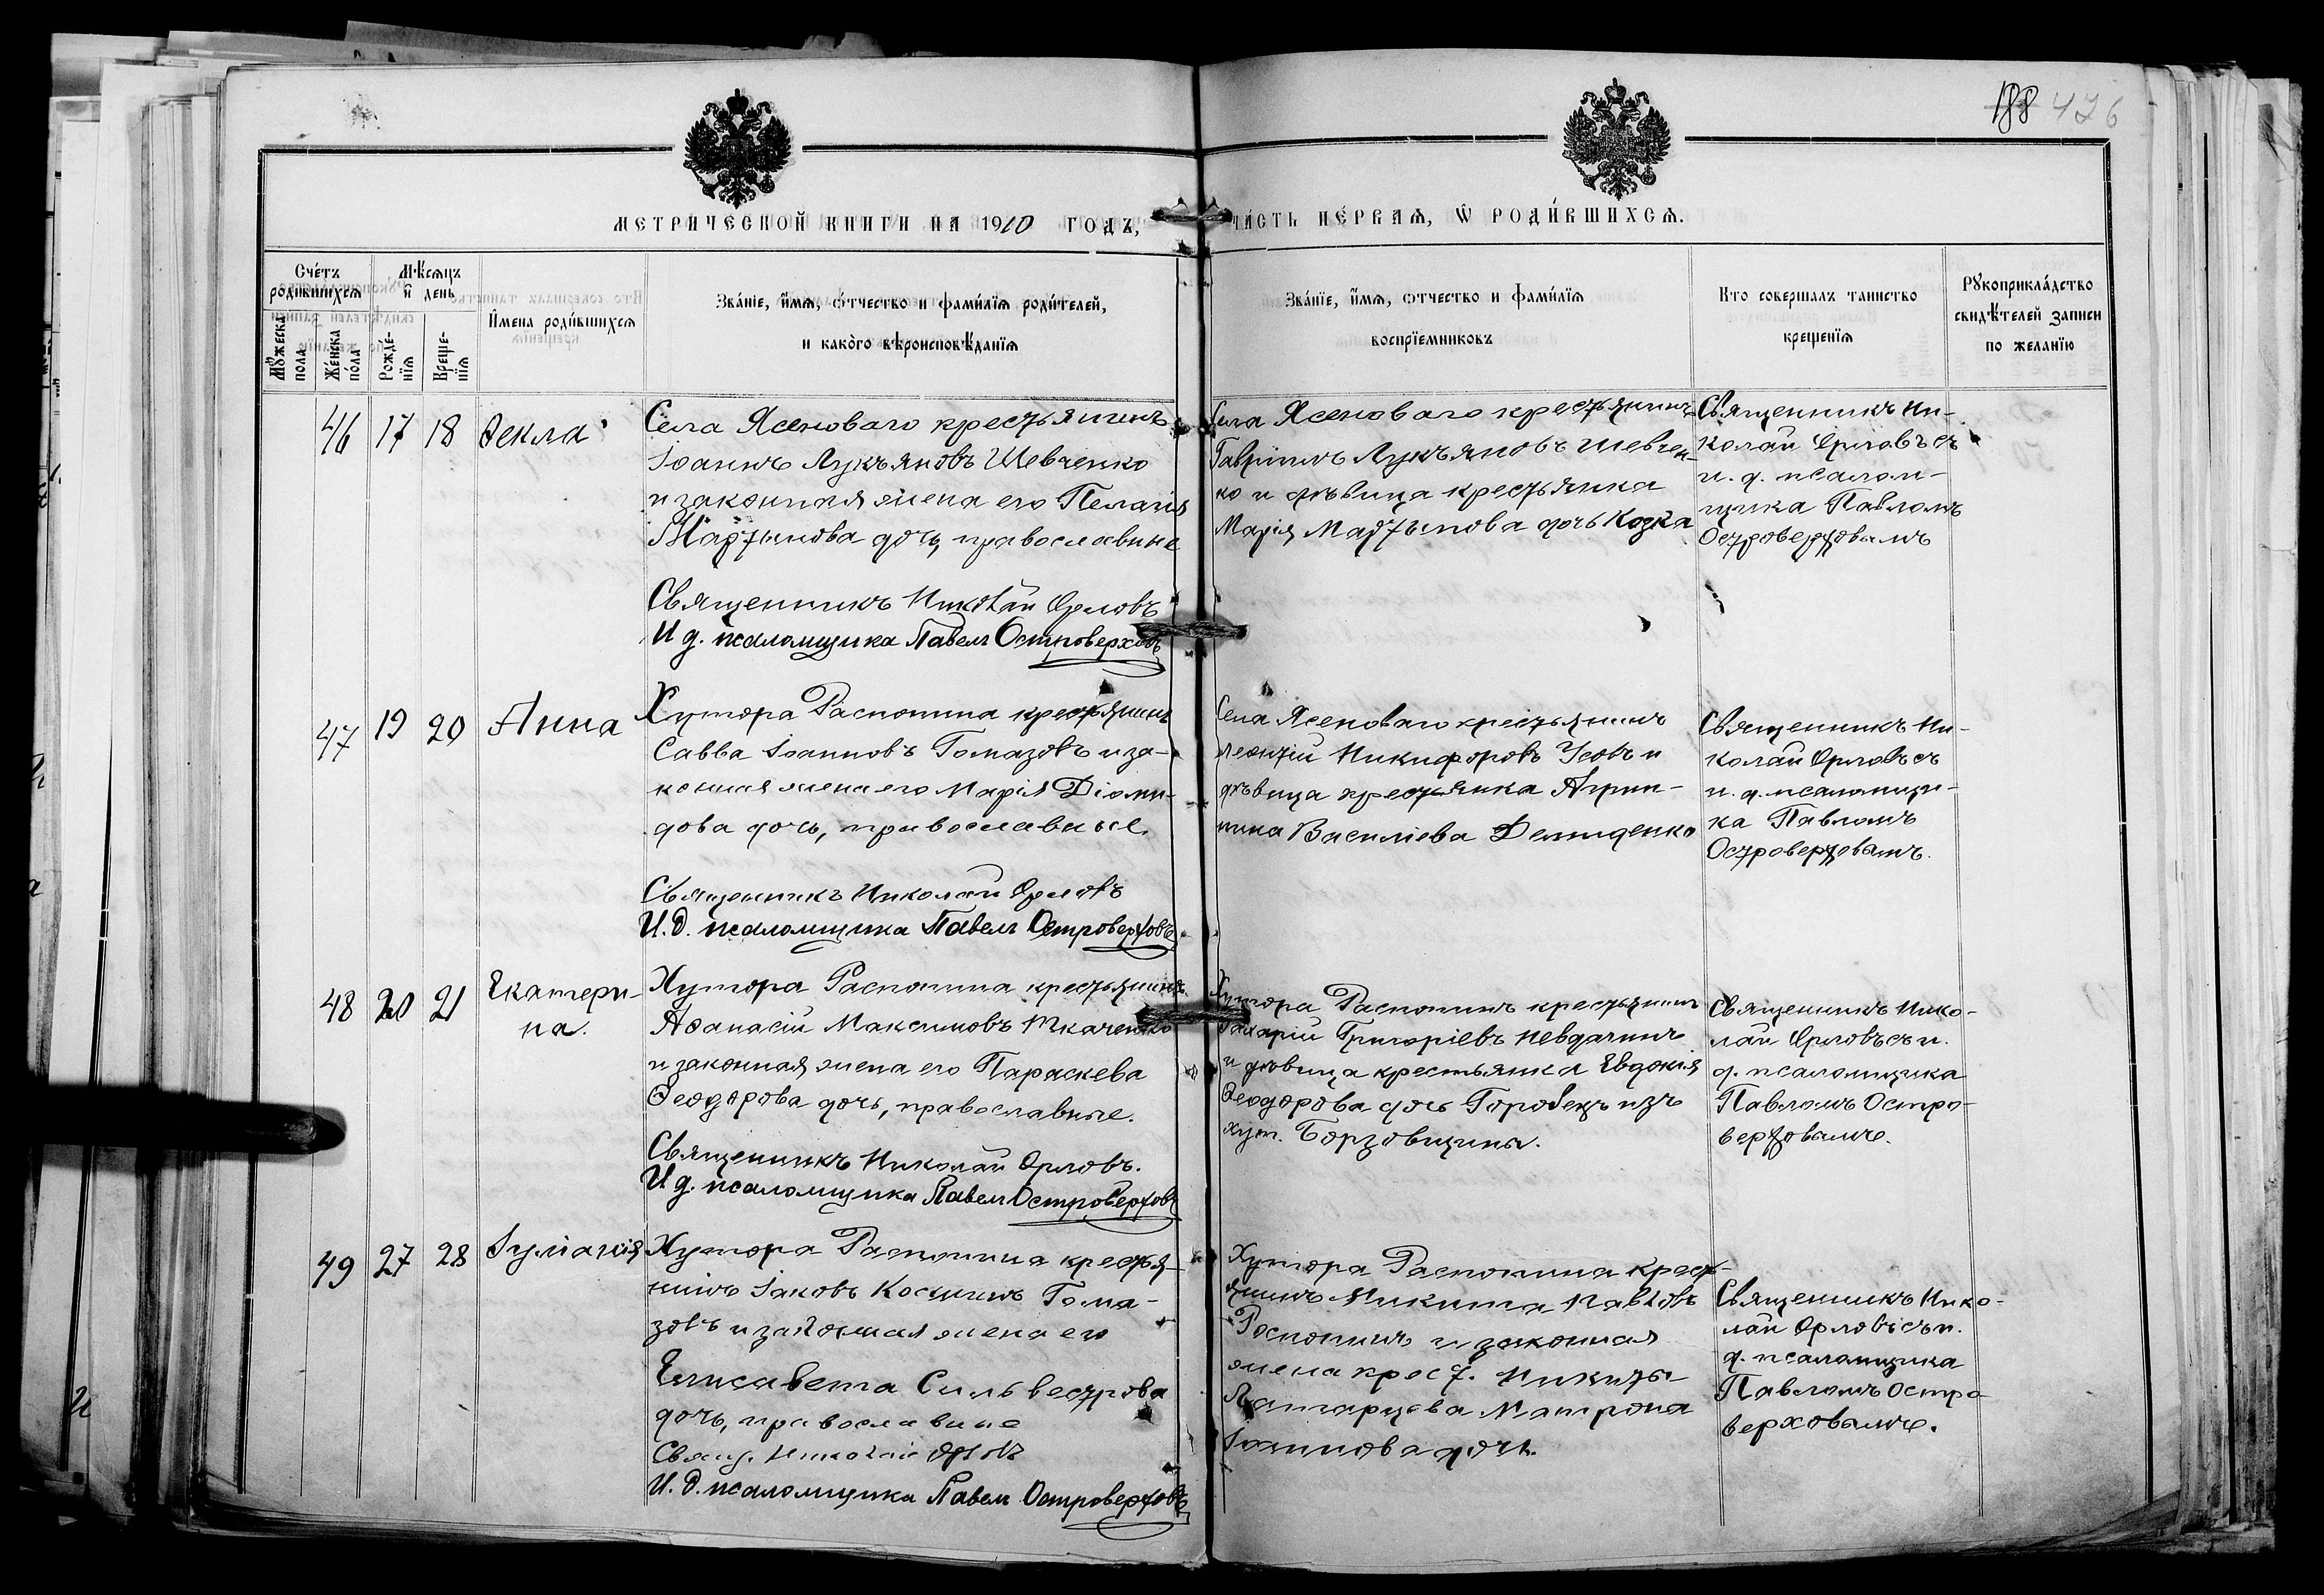 188 476
МЕТРИЧЕСКОЙ КНИГИ НА 1910 ГОДЪ,
ЧАСТЬ ПЕРВАЯ, Ѿ РОДИВШИХСЯ.
Счетъ родившихся
Мѣсяцъ и день
Имена родившихся
Званіе, имя, отчество и фамилія родителей,
и какого вѣроисповѣданія
Мужеска пола
Женска пола
Рожденія
Крещенія
Званіе, имя, отчество и фамилія
воспріемниковъ
Кто совершалъ таинство
крещенія
Рукоприкладство
свидѣтелей записи
по желанію
46 17 18 Ѳекла
Села Ясеноваго крестьянинъ
Іоаннъ Лукьяновъ Шевченко
и законная жена его Пелагія
Мартынова дочь, православные
Священникъ Николай Орловъ
И д. псаломщика Павелъ Островерховъ
Села Ясеноваго крестьянинъ
Гавріилъ Лукьяновъ Шевчен-
ко и дѣвица крестьянка
Марія Мартынова дочь Козка
Священникъ Ни-
колай Орловъ съ
и. д. псалом-
щика Павломъ
Островерховымъ
47 19 20 Анна
Хутора Распопина крестьянинъ
Савва Іоанновъ Гомазовъ и за-
конная жена его Марія Діоми-
дова дочь, православные.
Священникъ Николай Орловъ
И. д. псаломщика Павелъ Островерховъ
Села Ясеноваго крестьянинъ
Леонтій Никифоровъ Усовъ и
дѣвица крестьянка Агрип-
пина Василіева Демиденко
Священникъ Ни-
колай Орловъ съ
и. д. псаломщи-
ка Павломъ
Островерховымъ.
48 20 21 Екатери-
на.
Хутора Распопина крестьянинъ
Аѳанасій Максимовъ Ткаченко
и законная жена его Параскева
Ѳеодорова дочь, православные.
Священникъ Николай Орловъ.
И д. псаломщика Павелъ Островерховъ
Хутора Распопинъ крестьянинъ
Захарій Григоріевъ Невдачинъ
и дѣвица крестьянка Евдокія
Ѳеодорова дочь Горобецъ изъ
хут. Борзовщины.
Священникъ Нико-
лай Орловъ съ и.
д. псаломщика
Павломъ Остро-
верховымъ.
49 27 28 Іуліанія
Хутора Распопина крестья-
нинъ Іаковъ Косминъ Гома-
зовъ и законная жена его
Елисавета Сильвестрова
дочь, православные
Свящ. Николай Орловъ
И. д. псаломщика Павелъ Островерховъ
Хутора Распопина кресть-
янинъ Никита Павловъ
Распопинъ и законная
жена крест. Никиты
Іоаннова дочь.
Священникъ Нико-
лай Орловъ съ и.
д. псаломщика
Павломъ Остро-
верховымъ.